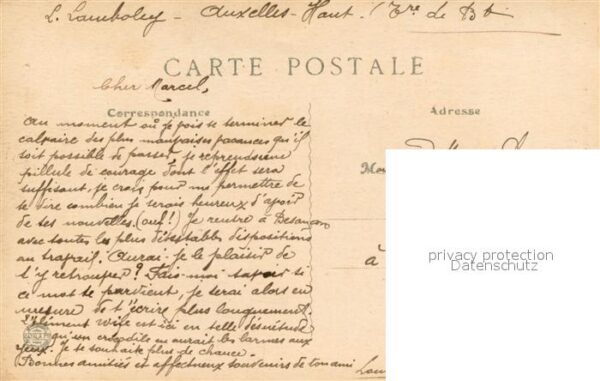 L. Lamboley - Auxelles-Haut. (Tre de Bt
CARTE POSTALE
Cher Marcel,
Correspondance
Adresse
Au moment où je vois se terminer le
calvaire des plus mauvaises vacances qu'il
soit possible de passer, je reprends une
pillule de courage dont l'effet sera
suffisant, je crois, pour me permettre de
te dire combien je serais heureux d'avoir
de tes nouvelles. (ouf!) Je rentre à Besançon
avec toutes les plus détestables dispositions
au travail. Aurai-je le plaisir de
t'y retrouver? Fais-moi savoir si
ce mot te parvient, je serai alors en
mesure de t'écrire plus longuement.
L'élément wife est ici en telle désuétude
qu'un crocodile en aurait les larmes aux
yeux. Je te souhaite plus de chance.
Bonnes amitiés et affectueux souvenirs de ton ami
à
privacy protection
Datenschutz